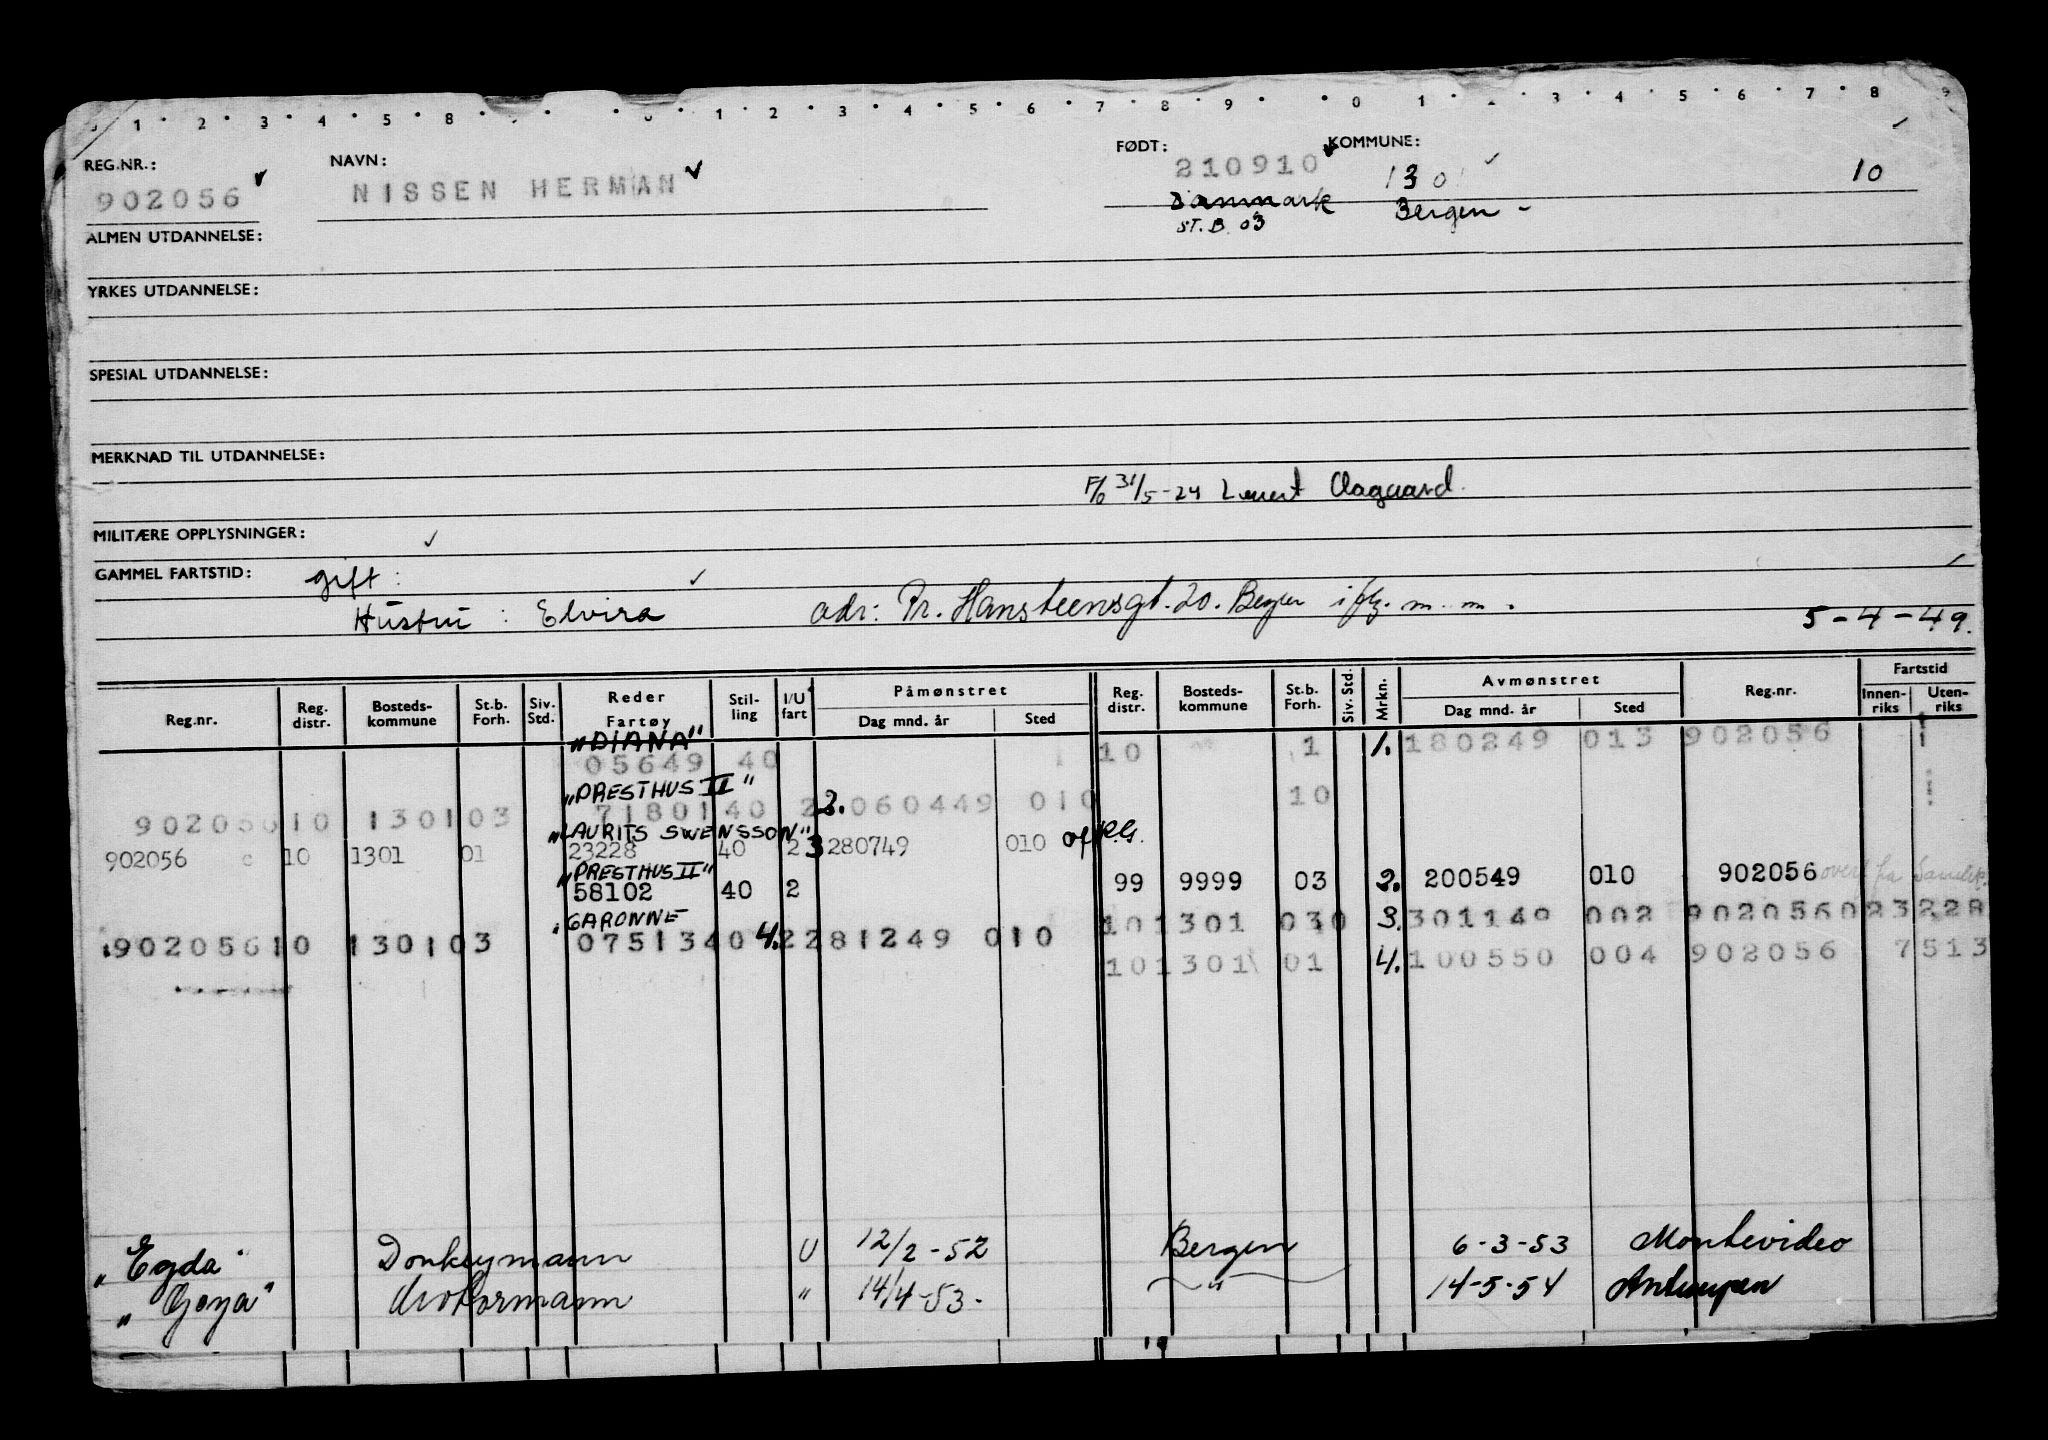 1 2 3 4 5 8 1 2 3 4 5 6 7 8 9 0 1 2 3 4 5 6 7 8 9
REG.NR.: NAVN: FØDT: KOMMUNE:
902056 NISSEN HERMAN 210910 130 10
Danmark Bergen -
ST.B. 03
ALMEN UTDANNELSE:
YRKES UTDANNELSE:
SPESIAL UTDANNELSE:
MERKNAD TIL UTDANNELSE:
F/o 31/5-24 Aagaard.
MILITÆRE OPPLYSNINGER:
GAMMEL FARTSTID: gift:
Hustru : Elvira adr: Pr. Hansteensgt. 20. Bergen iflg. m. m. 5-4-49.
Reg.nr. Reg. distr. Bosteds-kommune St.b. Forh. Siv. Std. Reder Fartøy Stil-ling I/U fart Påmønstret Dag mnd. år Sted Reg. distr. Bosteds-kommune St.b. Forh. Siv. Std. Mrkn. Avmønstret Dag mnd. år Sted Reg.nr. Fartstid Innen-riks Uten-riks
"DIANA"
05649 40 10 1 1. 180249 013 902056
"PRESTHUS II"
902056 10 1301 03 71801 40 2 2. 060449 010 10
"LAURITS SWENSSON"
902056 c 10 1301 01 23228 40 2 3 280749 010
"PRESTHUS II"
58102 40 2 99 9999 03 2. 200549 010 902056
"GARONNE
902056 10 1301 03 07513 40 4. 2 281249 010 10 1301 030 3. 301149 002 902056 023228
10 1301 01 4. 100550 004 902056 7513
"Egda" Donkeymann U 12/2-52 Bergen 6-3-53 Montevideo
"Goya" Motormann " 14/4-53- " 14-5-54 Antwerpen